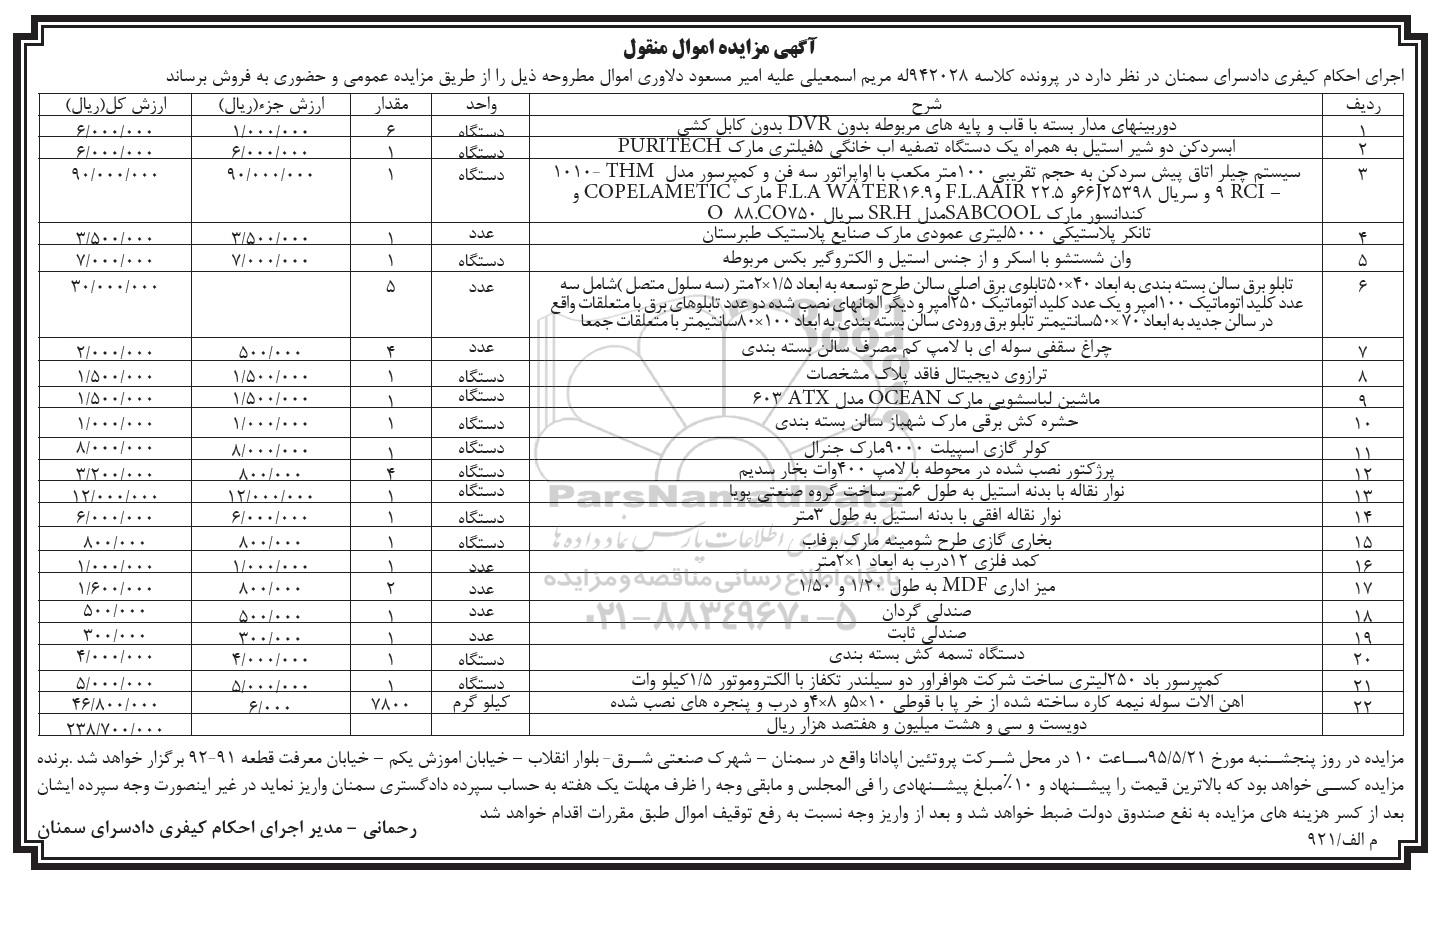 آگهی مزایده اموال منقول
اجرای احکام کیفری دادسرای سمنان در نظر دارد در پرونده کلاسه ۹۴۲۰۲۸له مریم اسمعیلی علیه امیر مسعود دلاوری اموال مطروحه ذیل را از طریق مزایده عمومی و حضوری به فروش برساند
ردیف شرح واحد مقدار ارزش جزء(ریال) ارزش کل(ریال)
۱ دوربینهای مدار بسته با قاب و پایه های مربوطه بدون DVR بدون کابل کشی دستگاه ۶ ۱/۰۰۰/۰۰۰ ۶/۰۰۰/۰۰۰
۲ ابسردکن دو شیر استیل به همراه یک دستگاه تصفیه اب خانگی ۵فیلتری مارک PURITECH دستگاه ۱ ۶/۰۰۰/۰۰۰ ۶/۰۰۰/۰۰۰
۳ سیستم چیلر اتاق پیش سردکن به حجم تقریبی ۱۰۰متر مکعب با اواپراتور سه فن و کمپرسور مدل THM -۱۰۱۰ دستگاه ۱ ۹۰/۰۰۰/۰۰۰ ۹۰/۰۰۰/۰۰۰
– ۹ RCI و سریال ۶۶J۲۵۳۹۸و F.L.AAIR ۲۲.۵ و F.L.A WATER۱۶.۹ مارک COPELAMETIC و
کندانسور مارک SABCOOLمدل SR.H سریال O ۸۸.CO۷۵۰
۴ تانکر پلاستیکی ۵۰۰۰لیتری عمودی مارک صنایع پلاستیک طبرستان عدد ۱ ۳/۵۰۰/۰۰۰ ۳/۵۰۰/۰۰۰
۵ وان شستشو با اسکر و از جنس استیل و الکتروگیر بکس مربوطه دستگاه ۱ ۷/۰۰۰/۰۰۰ ۷/۰۰۰/۰۰۰
۶ تابلو برق سالن بسته بندی به ابعاد ۴۰×۵۰تابلوی برق اصلی سالن طرح توسعه به ابعاد ۱/۵×۲متر (سه سلول متصل )شامل سه عدد ۵ ۳۰/۰۰۰/۰۰۰
عدد کلید اتوماتیک ۱۰۰امپر و یک عدد کلید اتوماتیک ۲۵۰امپر و دیگر المانهای نصب شده دو عدد تابلوهای برق با متعلقات واقع
در سالن جدید به ابعاد ۷۰ ×۵۰سانتیمتر تابلو برق ورودی سالن بسته بندی به ابعاد ۱۰۰×۸۰سانتیمتر با متعلقات جمعا
۷ چراغ سقفی سوله ای با لامپ کم مصرف سالن بسته بندی عدد ۴ ۵۰۰/۰۰۰ ۲/۰۰۰/۰۰۰
۸ ترازوی دیجیتال فاقد پلاک مشخصات دستگاه ۱ ۱/۵۰۰/۰۰۰ ۱/۵۰۰/۰۰۰
۹ ماشین لباسشویی مارک OCEAN مدل ATX ۶۰۳ دستگاه ۱ ۱/۵۰۰/۰۰۰ ۱/۵۰۰/۰۰۰
۱۰ حشره کش برقی مارک شهباز سالن بسته بندی دستگاه ۱ ۱/۰۰۰/۰۰۰ ۱/۰۰۰/۰۰۰
۱۱ کولر گازی اسپیلت ۹۰۰۰مارک جنرال دستگاه ۱ ۸/۰۰۰/۰۰۰ ۸/۰۰۰/۰۰۰
۱۲ پرژکتور نصب شده در محوطه با لامپ ۴۰۰وات بخار سدیم دستگاه ۴ ۸۰۰/۰۰۰ ۳/۲۰۰/۰۰۰
۱۳ نوار نقاله با بدنه استیل به طول ۶متر ساخت گروه صنعتی پویا دستگاه ۱ ۱۲/۰۰۰/۰۰۰ ۱۲/۰۰۰/۰۰۰
۱۴ نوار نقاله افقی با بدنه استیل به طول ۳متر دستگاه ۱ ۶/۰۰۰/۰۰۰ ۶/۰۰۰/۰۰۰
۱۵ بخاری گازی طرح شومینه مارک برفاب دستگاه ۱ ۸۰۰/۰۰۰ ۸۰۰/۰۰۰
۱۶ کمد فلزی ۱۲درب به ابعاد ۱×۲متر عدد ۱ ۱/۰۰۰/۰۰۰ ۱/۰۰۰/۰۰۰
۱۷ میز اداری MDF به طول ۱/۲۰ و ۱/۵۰ عدد ۲ ۸۰۰/۰۰۰ ۱/۶۰۰/۰۰۰
۱۸ صندلی گردان عدد ۱ ۵۰۰/۰۰۰ ۵۰۰/۰۰۰
۱۹ صندلی ثابت عدد ۱ ۳۰۰/۰۰۰ ۳۰۰/۰۰۰
۲۰ دستگاه تسمه کش بسته بندی دستگاه ۱ ۴/۰۰۰/۰۰۰ ۴/۰۰۰/۰۰۰
۲۱ کمپرسور باد ۲۵۰لیتری ساخت شرکت هوافراور دو سیلندر تکفاز با الکتروموتور ۱/۵کیلو وات دستگاه ۱ ۵/۰۰۰/۰۰۰ ۵/۰۰۰/۰۰۰
۲۲ اهن الات سوله نیمه کاره ساخته شده از خر پا با قوطی ۱۰×۵و ۸×۴و درب و پنجره های نصب شده کیلو گرم ۷۸۰۰ ۶/۰۰۰ ۴۶/۸۰۰/۰۰۰
دویست و سی و هشت میلیون و هفتصد هزار ریال ۲۳۸/۷۰۰/۰۰۰
مزایده در روز پنجشنبه مورخ ۹۵/۵/۲۱ساعت ۱۰ در محل شرکت پروتئین اپادانا واقع در سمنان – شهرک صنعتی شرق- بلوار انقلاب – خیابان اموزش یکم – خیابان معرفت قطعه ۹۱-۹۲ برگزار خواهد شد .برنده
مزایده کسی خواهد بود که بالاترین قیمت را پیشنهاد و ۱۰٪مبلغ پیشنهادی را فی المجلس و مابقی وجه را ظرف مهلت یک هفته به حساب سپرده دادگستری سمنان واریز نماید در غیر اینصورت وجه سپرده ایشان
بعد از کسر هزینه های مزایده به نفع صندوق دولت ضبط خواهد شد و بعد از واریز وجه نسبت به رفع توقیف اموال طبق مقررات اقدام خواهد شد
رحمانی – مدیر اجرای احکام کیفری دادسرای سمنان
م الف/۹۲۱
ParsNamadData
پایگاه اطلاع رسانی مناقصه و مزایده
۰۲۱-۸۸۳۴۹۶۷۰-۵